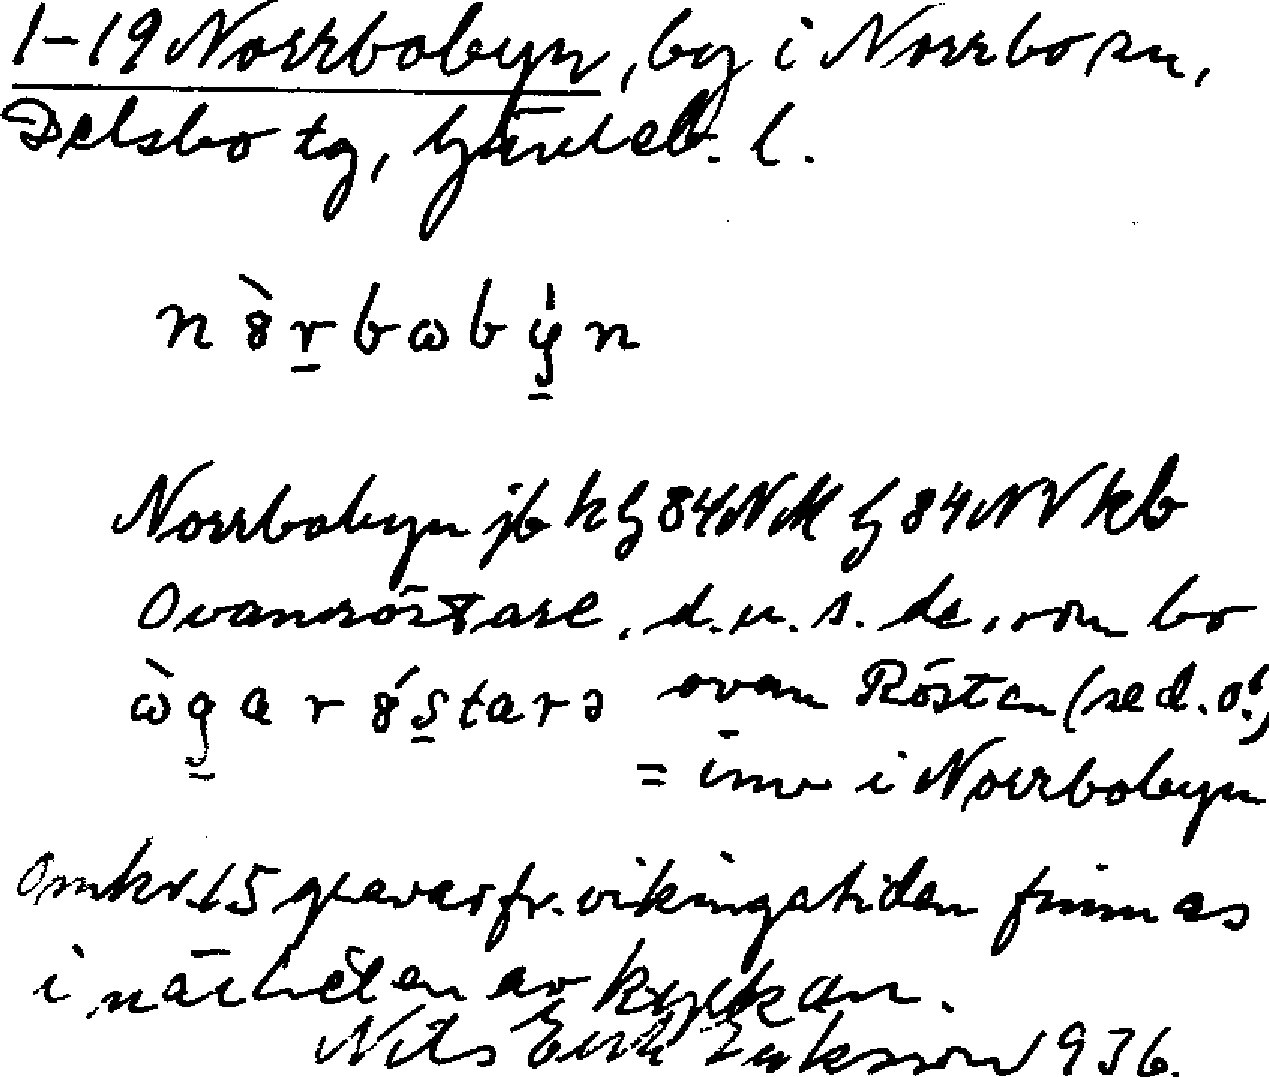 1-19 Norrbobyn, by i Norrbo sn,
Delsbo tg, Gävleb. l.
Norrbobyn jb k G 84 NM G 84 NV kb
Ovanröstare, d.v.s. de, som bo
ovan Rösten (se d. o.!)
= inv i Norrbobyn
Omkr. 15 gravar fr. vikingatiden finnas
i närheten av kyrkan.
Nils Erik Eriksson 1936.